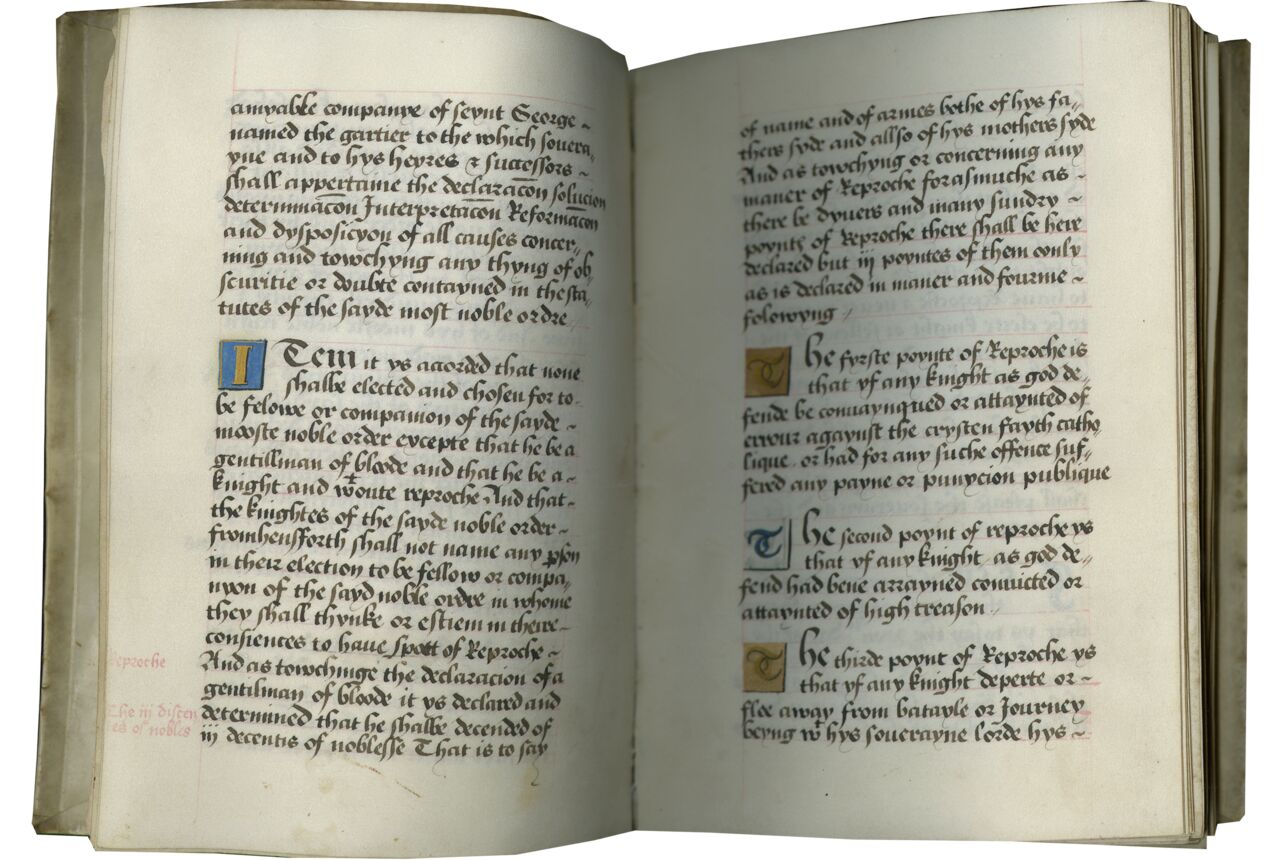 amyable companye of seynt George ~
named the gartier to the which sovera„
yne and to hys heyres & successors ~
shall appertaine the declaracōn solucion
determinacōn Interpretacōn Reformacōn
and dysposicyon of all causes concer„
ning and towchyng any thyng of ob„
scuritie or doubte contayned in the sta„
tutes of the sayde most noble ordre
ITem it ys accorded that none
shalbe elected and chosen for to
be felowe or companion of the sayde ~
mooste noble order excepte that he be a
gentillman of bloode and that he be a ~
knight and wtoute reproche And that ~
the knightes of the sayde noble order ~
fromhensfforth shall not name any pson
in their election to be fellow or compa„
nyon of the sayd noble ordre in whome
they shall thynke or estiem in theire ~
consiences to have spott of Reproche ~
And as towchinge the declaracion of a
gentilman of bloode it ys declared and
determined that he shalbe decended of
iij decentis of noblesse That is to say
Reproche
The iij discen
tes of nobles
of name and of armes bothe of hys fa„
thers syde and allso of hys mothers syde
And as towchyng or concerning any
maner of Reproche forasmuche as ~
there be dyvers and many sundry ~
poynts of Reproche there shall be here
declared but iij poyntes of them only
as is declared in maner and fourme ~
folowyng
The fyrste poynte of Reproche is
that yf any knight as god de„
fende be convaynqued or attaynted of
errour agaynst the crysten fayth catho
lique or had for any suche offence suf„
fered any payne or punycion publique
The second poynt of reproche ys
that yf any knight as god de„
fend had bene arrayned convicted or
attaynted of high treason
The thirde poynt of Reproche ys
that yf any knight deperte or ~
flee away from batayle or Journey
beyng wt hys soverayne lorde hys ~